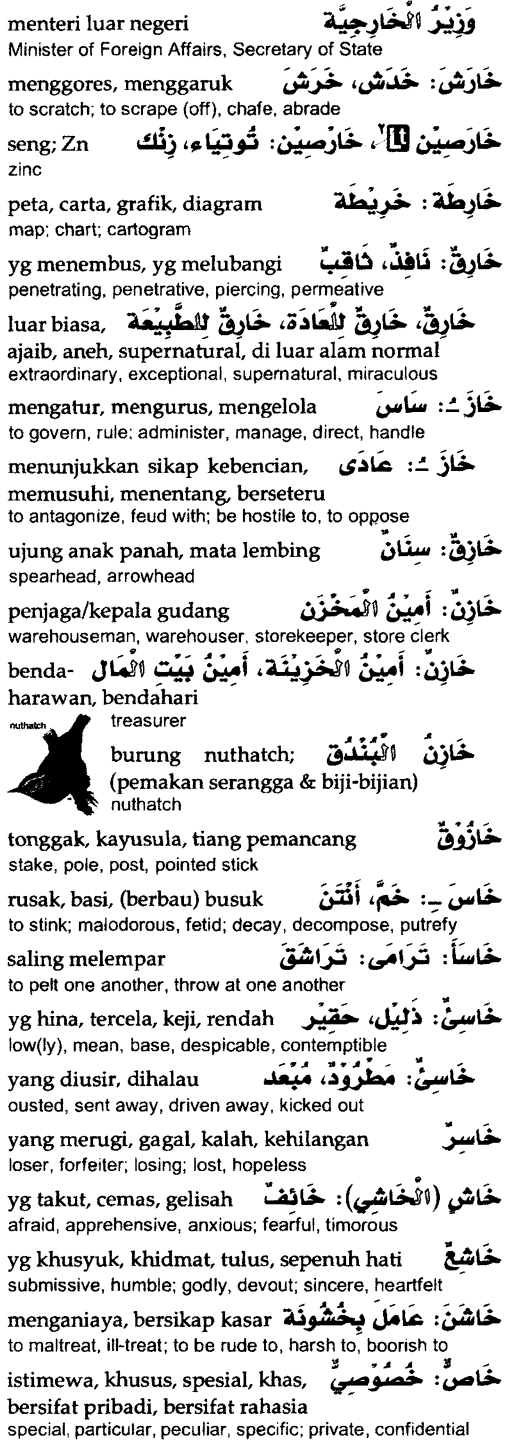 menteri luar negeri وَزِيْرُ الْخَارِجِيَّة
Minister of Foreign Affairs, Secretary of State
menggores, menggaruk خَارَشَ: خَدَشَ، خَرَشَ
to scratch; to scrape (off), chafe, abrade
seng; Zn خَارَصِيْن، خَارْصِيْن: تُوتِيَاء، زِنْك
zinc
peta, carta, grafik, diagram خَارِطَة: خَرِيْطَة
map; chart; cartogram
yg menembus, yg melubangi خَارِقٌ: نَافِذٌ، ثَاقِبٌ
penetrating, penetrative, piercing, permeative
luar biasa, خَارِقٌ، خَارِقٌ لِلْعَادَة، خَارِقٌ لِلطَّبِيْعَة
ajaib, aneh, supernatural, di luar alam normal
extraordinary, exceptional, supernatural, miraculous
mengatur, mengurus, mengelola خَازَ ـُ: سَاسَ
to govern, rule; administer, manage, direct, handle
menunjukkan sikap kebencian, خَازَ ـُ: عَادَى
memusuhi, menentang, berseteru
to antagonize, feud with; be hostile to, to oppose
ujung anak panah, mata lembing خَازِقٌ: سِنَانٌ
spearhead, arrowhead
penjaga/kepala gudang خَازِنٌ: أَمِيْنُ الْمَخْزَن
warehouseman, warehouser, storekeeper, store clerk
benda- خَازِنٌ: أَمِيْنُ الْخَزِيْنَة، أَمِيْنُ بَيْتِ الْمَال
harawan, bendahari
treasurer
nuthatch
burung nuthatch; خَازِنُ الْبُنْدُق
(pemakan serangga & biji-bijian)
nuthatch
tonggak, kayusula, tiang pemancang خَازُوْقٌ
stake, pole, post, pointed stick
rusak, basi, (berbau) busuk خَاسَ ـِ: خَمَّ، أَنْتَنَ
to stink; malodorous, fetid; decay, decompose, putrefy
saling melempar خَاسَأَ: تَرَامَى: تَرَاشَقَ
to pelt one another, throw at one another
yg hina, tercela, keji, rendah خَاسِئٌ: ذَلِيْل، حَقِيْر
low(ly), mean, base, despicable, contemptible
yang diusir, dihalau خَاسِئٌ: مَطْرُوْدٌ، مُبْعَد
ousted, sent away, driven away, kicked out
yang merugi, gagal, kalah, kehilangan خَاسِرٌ
loser, forfeiter; losing; lost, hopeless
yg takut, cemas, gelisah خَاشٍ (الْخَاشِي): خَائِفٌ
afraid, apprehensive, anxious; fearful, timorous
yg khusyuk, khidmat, tulus, sepenuh hati خَاشِعٌ
submissive, humble; godly, devout; sincere, heartfelt
menganiaya, bersikap kasar خَاشَنَ: عَامَلَ بِخُشُونَة
to maltreat, ill-treat; to be rude to, harsh to, boorish to
istimewa, khusus, spesial, khas, خَاصٌّ: خُصُوْصِيٌّ
bersifat pribadi, bersifat rahasia
special, particular, peculiar, specific; private, confidential